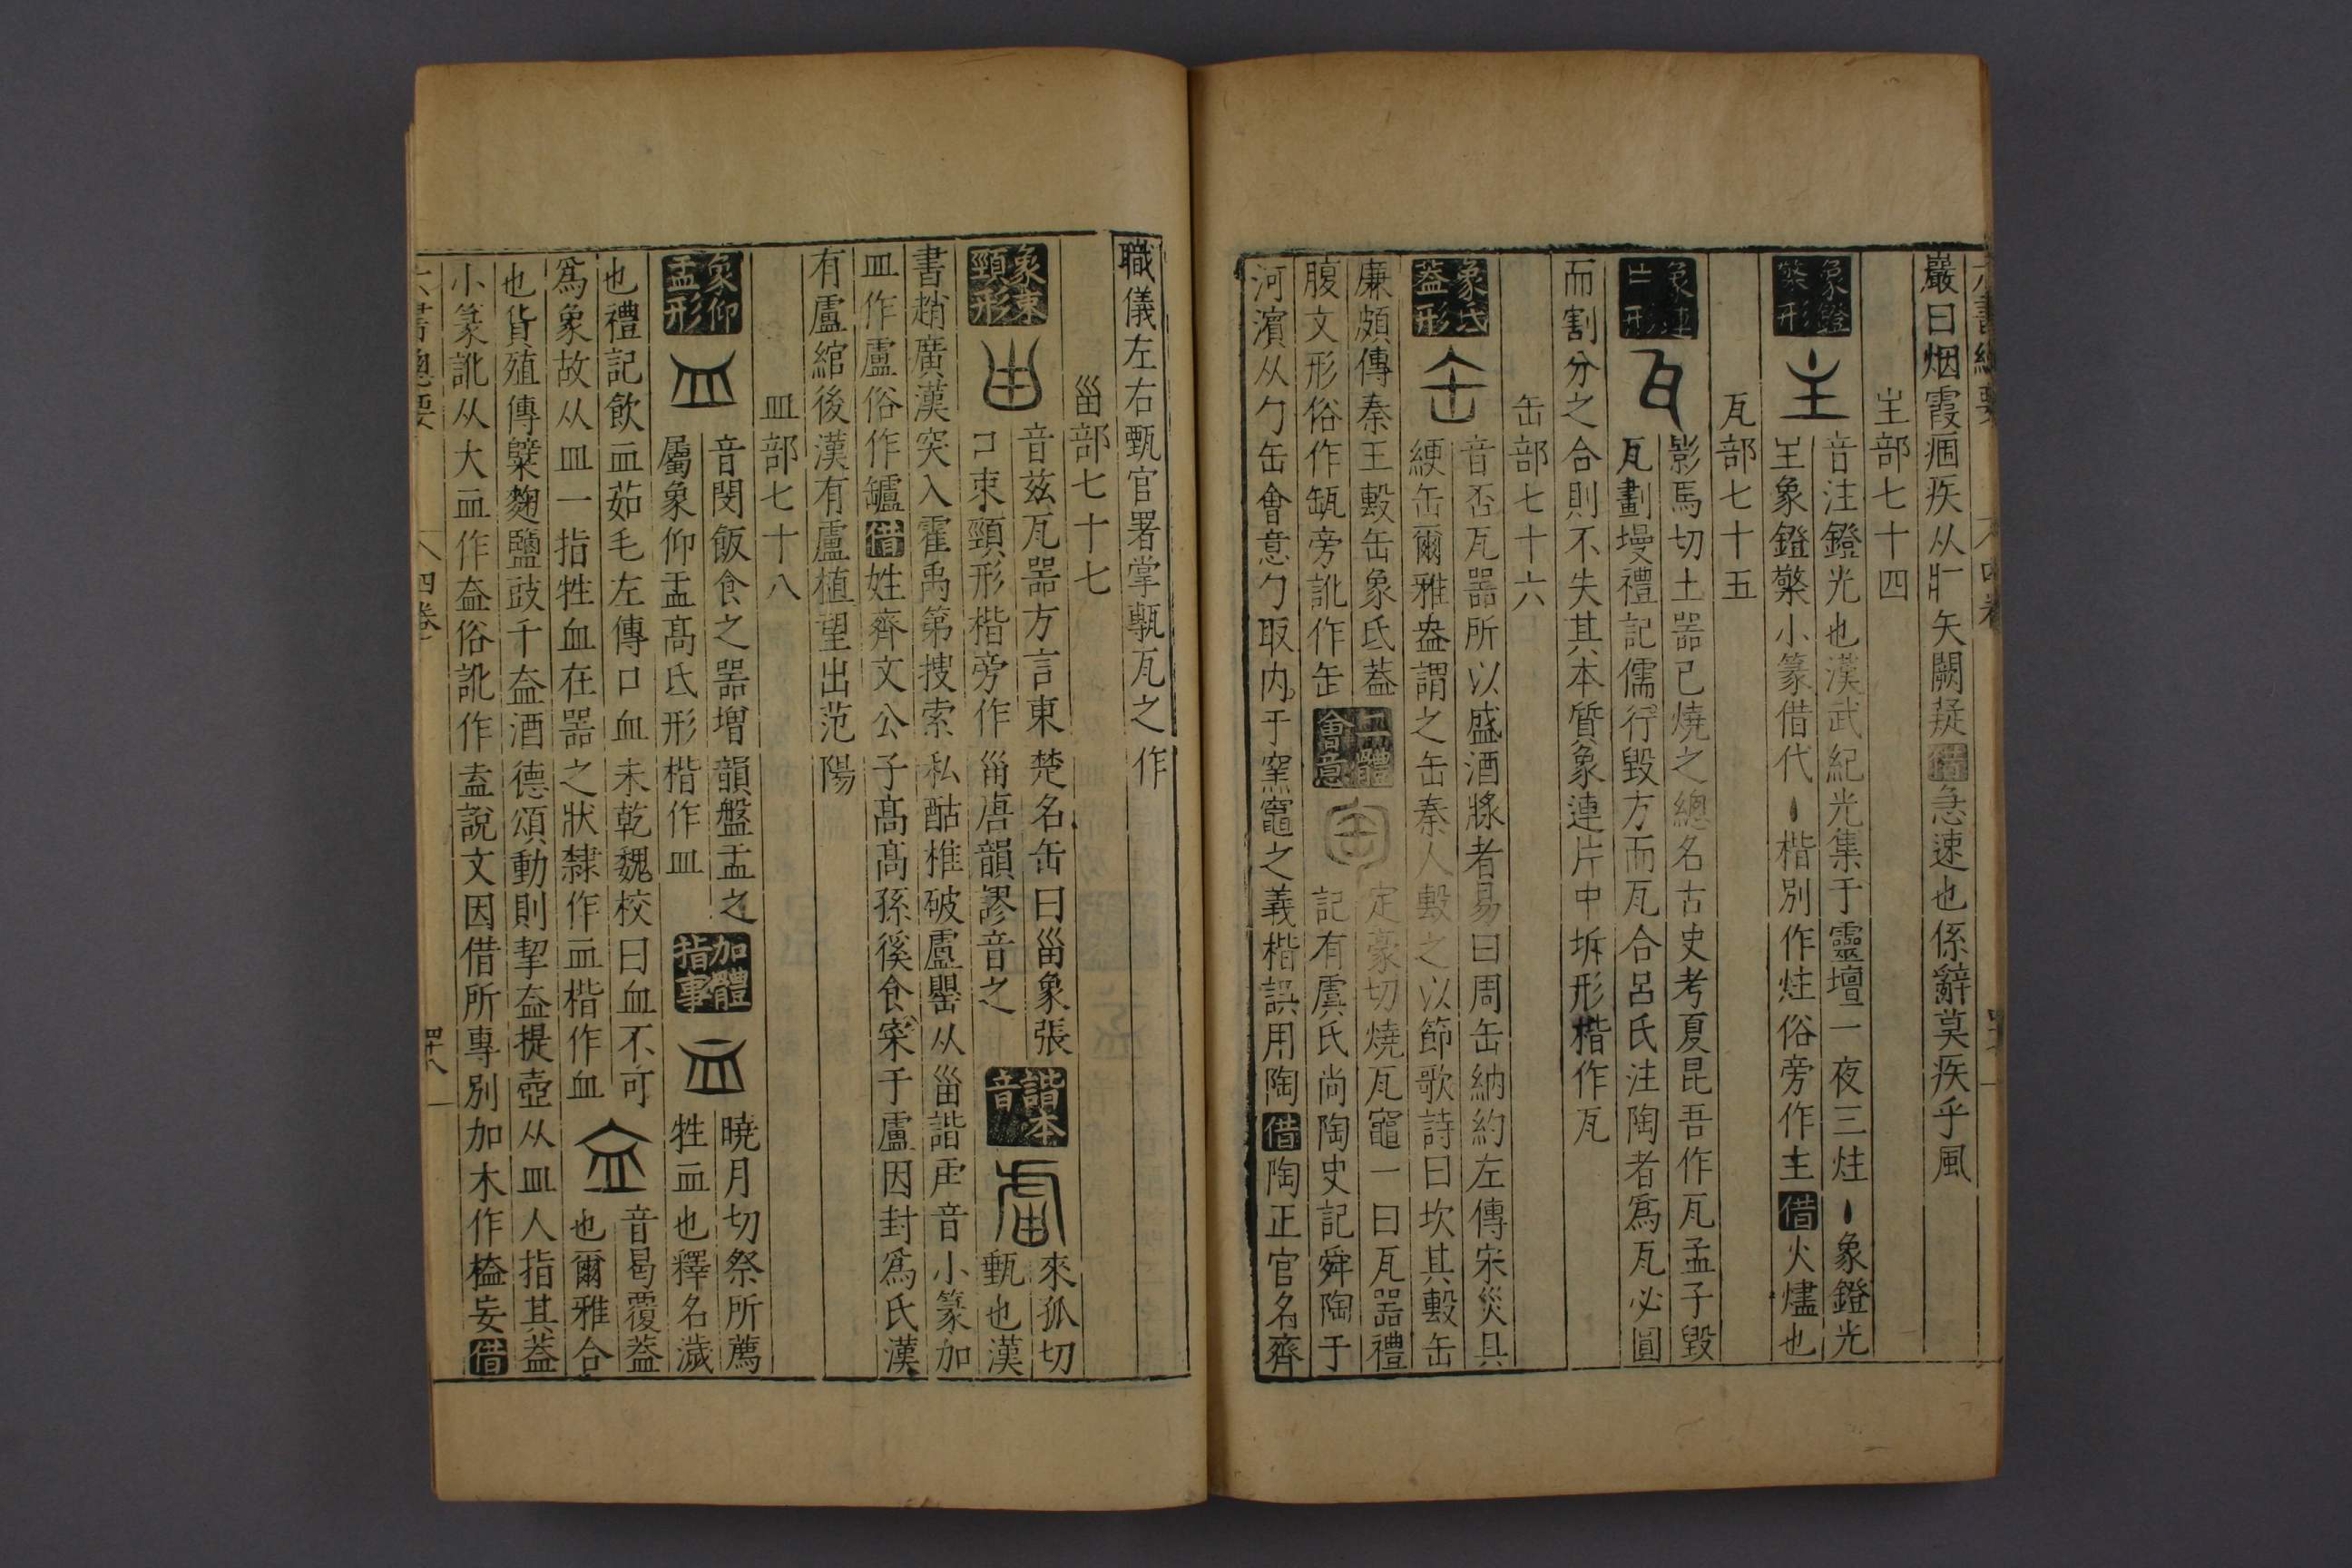 巖曰烟霞痼疾从疒矢闕疑借急速也係辭莫疾乎風
𡉚部七十四
象鐙
檠形
音注鐙光也漢武紀光集于靈壇一夜三炷丶象鐙光
𡈼象鐙檠小篆借代丶楷別作炷俗旁作主借火燼也
瓦部七十五
象連
片形
影馬切土器已燒之總名古史考夏昆吾作瓦孟子毀
瓦劃墁禮記儒行毀方而瓦合呂氏注陶者爲瓦必圓
而割分之合則不失其本質象連片中坼形楷作瓦
缶部七十六
象氐
蓋形
音否瓦器所以盛酒漿者易曰周缶納約左傳宋災具
綆缶爾雅盎謂之缶秦人鼔之以節歌詩曰坎其鼔缶
廉頗傳秦王鼔缶象氐蓋
腹文形俗作缻旁訛作缶
二體
會意
定豪切燒瓦竈一曰瓦器禮
記有虞氏尚陶史記舜陶于
河濱从勹缶會意勹取内于窯竈之義楷誤用陶借陶正官名齊
職儀左右甄官署掌甎瓦之作
甾部七十七
象束
頸形
音兹瓦器方言東楚名缶曰甾象張
口束頸形楷旁作甾唐韻謬音之
諧本
音
來孤切
甄也漢
書趙廣漢突入霍禹第搜索私酤椎破盧罌从甾諧虍音小篆加
皿作盧俗作罏借姓齊文公子高高孫徯食寀于盧因封爲氏漢
有盧綰後漢有盧植望出范陽
皿部七十八
象仰
盂形
音閔飯食之器增韻盤盂之
屬象仰盂高氐形楷作皿
加體
指事
曉月切祭所薦
牲血也釋名濊
也禮記飲血茹毛左傳口血未乾魏校曰血不可
爲象故从皿一指牲血在器之狀隸作血楷作血
音曷覆蓋
也爾雅合
也貨殖傳糱麴鹽豉千盍酒德頌動則挈盍提壺从皿人指其蓋
小篆訛从大血作盍俗訛作盇說文因借所專別加木作榼妄借
六書總要
四卷
四十八